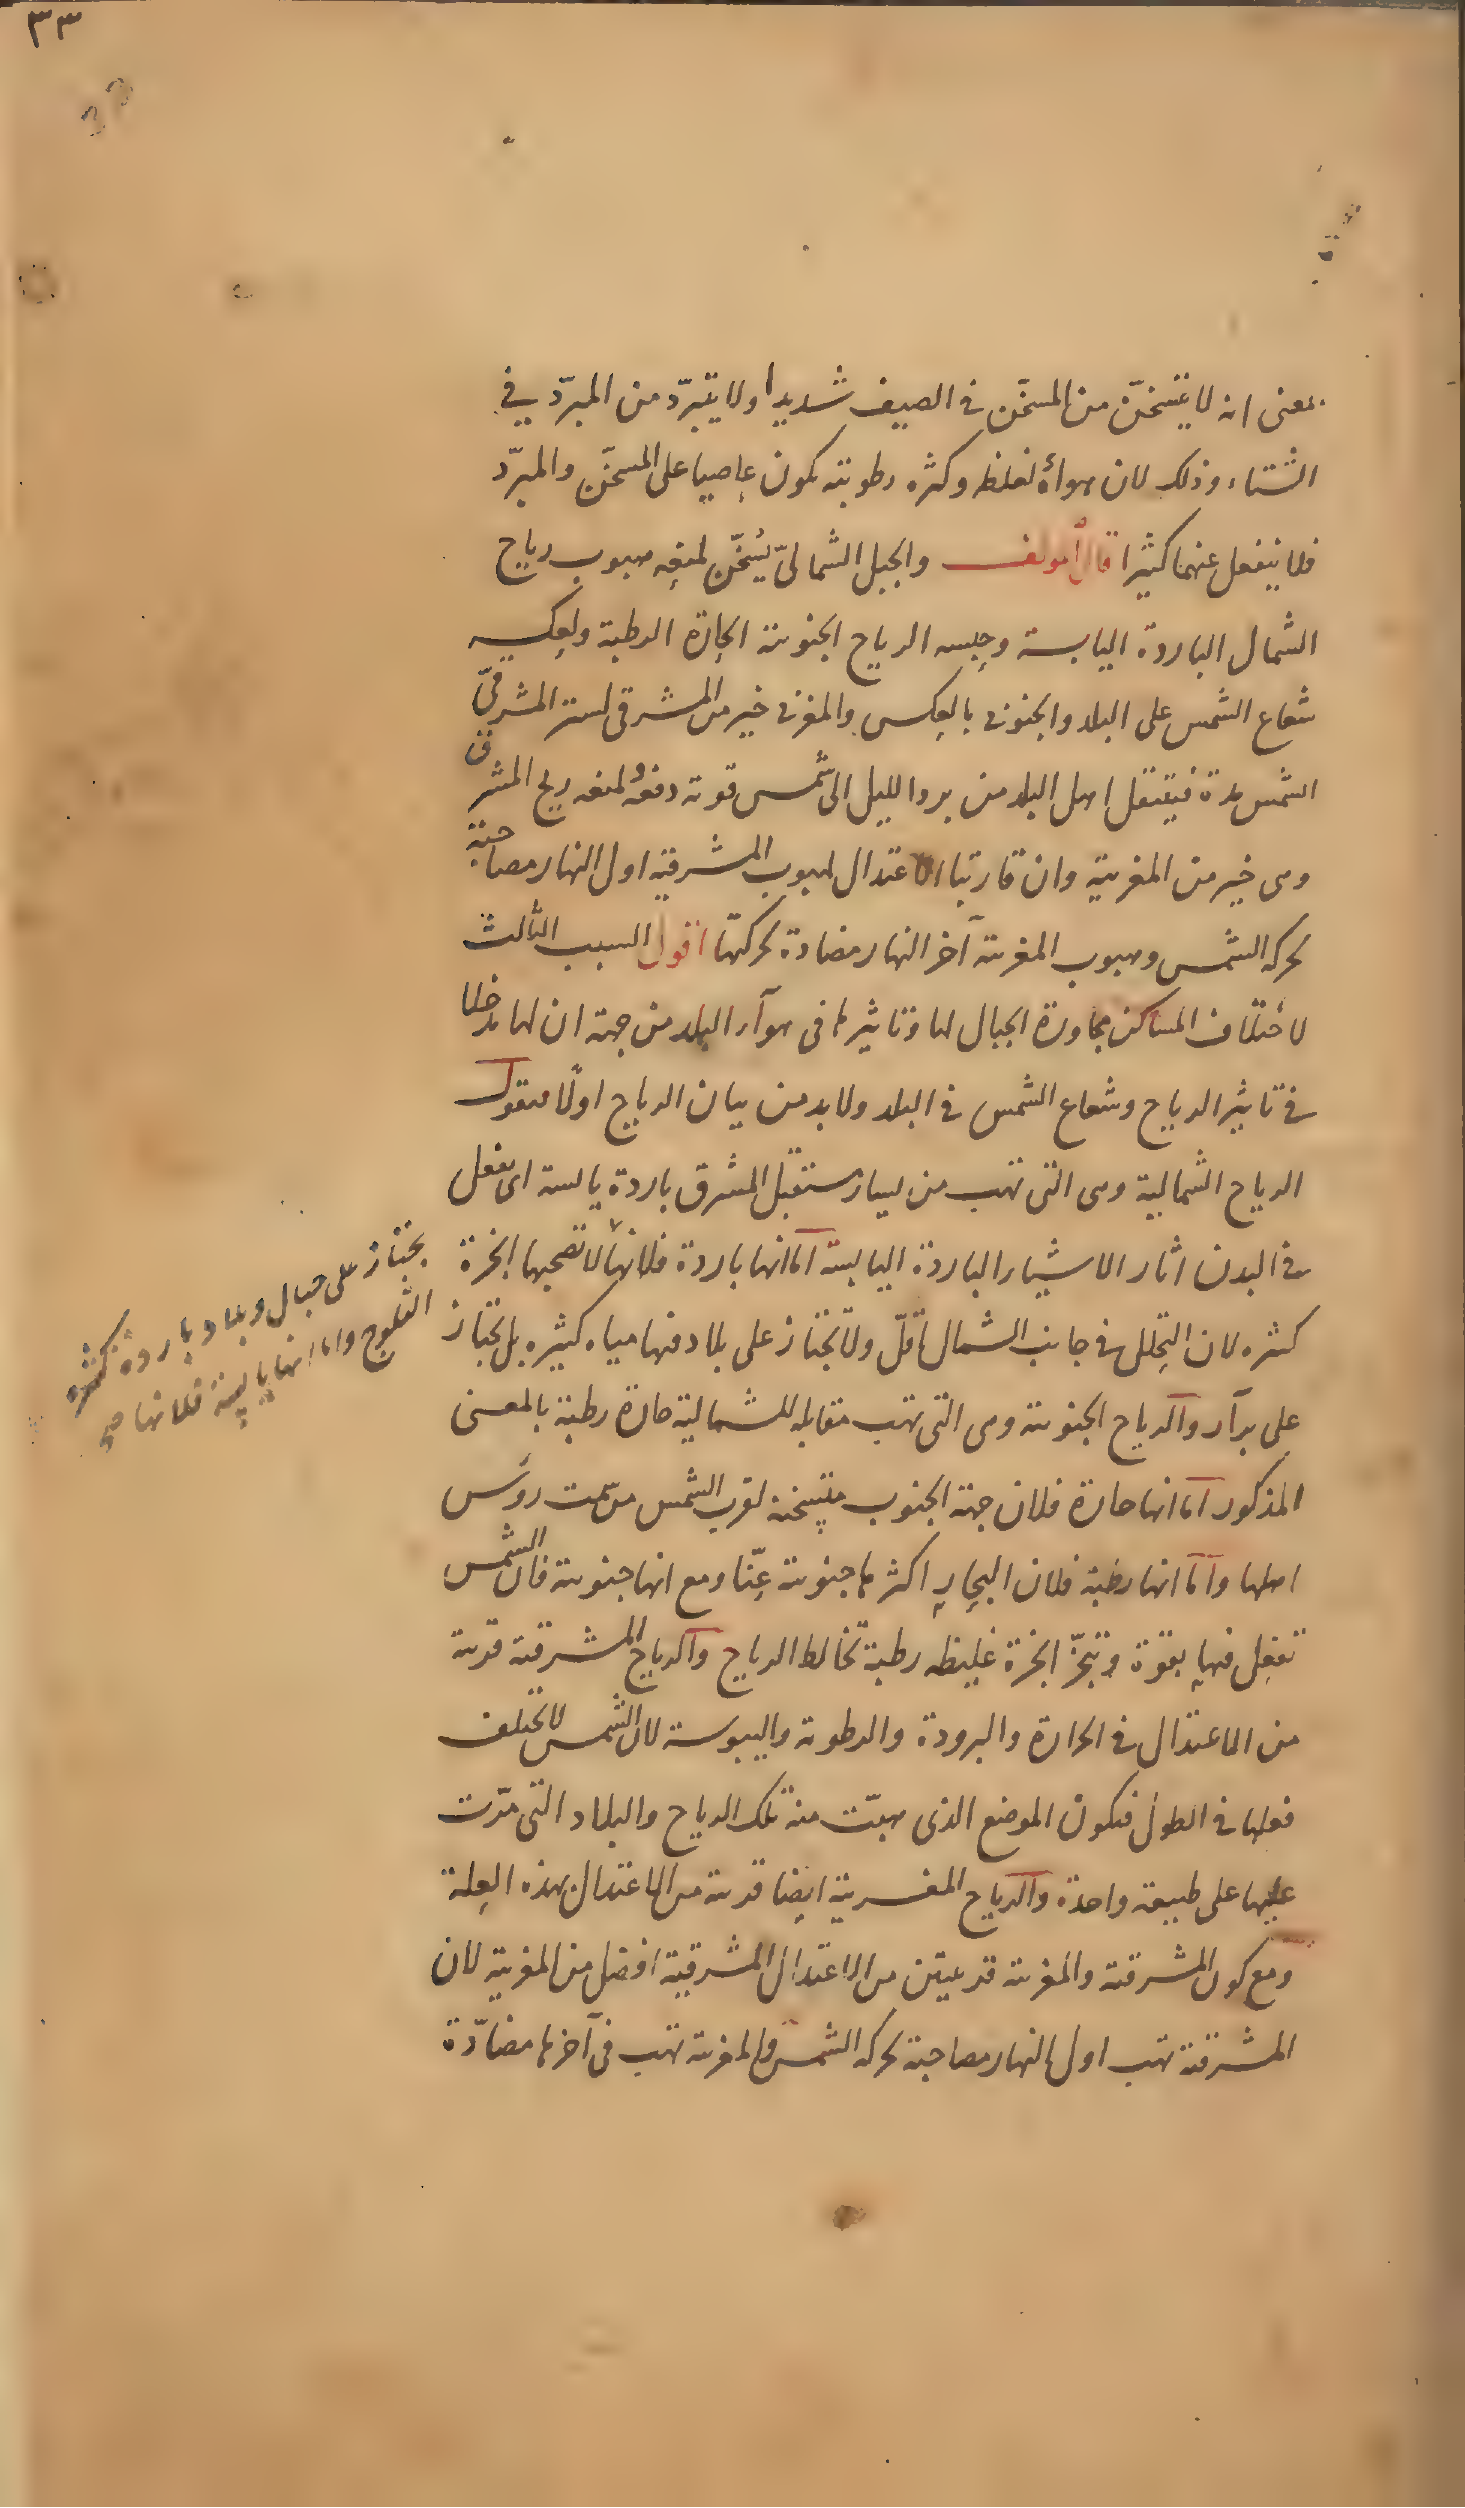 ٣٣
33
بمعنى انه لا يتسخّن من المسخّن فى الصيف شديدا ولا يتبرّد من المبرّد فى
الشتاء وذلك لان هواءه لغلظه وكثره رطوبته يكون عاصيا على المسخّن والمبرّد
فلا ينفعل عنهما كثيرا قال المولف والجبل الشمالىّ يُسخّن لمنعه هبوب رياح
الشمال الباردة اليابسة وحبسه الرياح الجنوبية الحارة الرطبة ولعكسه
شعاع الشمس على البلد والجنوبى بالعكس والمغربى خير من المشرقى لستر المشرقىّ
الشمس مدة فينتقل اهل البلد من برد الليل الى شمس قوية دفعة ولمنعه ريح المشرق
وهى خير من المغربية وان قاربتا الاعتدال لهبوب المشرقية اول النهار مصاحبة
لحركة الشمس وهبوب المغربية آخر النهار مضادة لحركتها اقول السبب الثالث
لاختلاف المساكن مجاورة الجبال لها وتاثيرها فى هوآء البلد من جهة ان لها مدخلا
فى تاثير الرياح وشعاع الشمس فى البلد ولا بد من بيان الرياح اولًا فنقول
الرياح الشمالية وهى التى تهب من يسار مستقبل المشرق باردة يابسة اى تفعل
فى البدن اثار الاشياء الباردة اليابسة امّا انها باردة فلانها لا تصحبها ابخرة
كثيره لان التحلل فى جانب الشمال اقلّ ولا تجتاز على بلاد فيها مياه كثيره بل تجتاز
على برآر والرياح الجنوبية وهى التى تهب مقابله للشمالية حارة رطبة بالمعنى
المذكور امّا انها حارة فلان جهة الجنوب متسخنة لقرب الشمس من سمت روس
اهلها وامّا انها رطبة فلان البحار اكثرها جنوبية عنّا ومع انها جنوبية فان الشمس
تفعل فيها بقوة وتبخّر ابخرة غليظه رطبة تخالط الرياح والرياح المشرقية قريبة
من الاعتدال فى الحرارة والبرودة والرطوبة واليبوسة لان الشمس لا يختلف
فعلها فى الطول فيكون الموضع الذى هبّت منه تلك الرياح والبلاد التى مرّت
عليها على طبيعة واحدة والرياح المغربية ايضا قريبة من الاعتدال بهذه العلة
ومع كون المشرقية والمغربية قريبتين من الاعتدال المشرقية افضل من المغربية لان
المشرقية تهب اول النهار مصاحبة لحركة الشمس والمغربية تهب فى آخرها مضادّة
تجتاز على جبال وبلاد باردة كثيرة
الثلوج واما انها يابسة فلانها